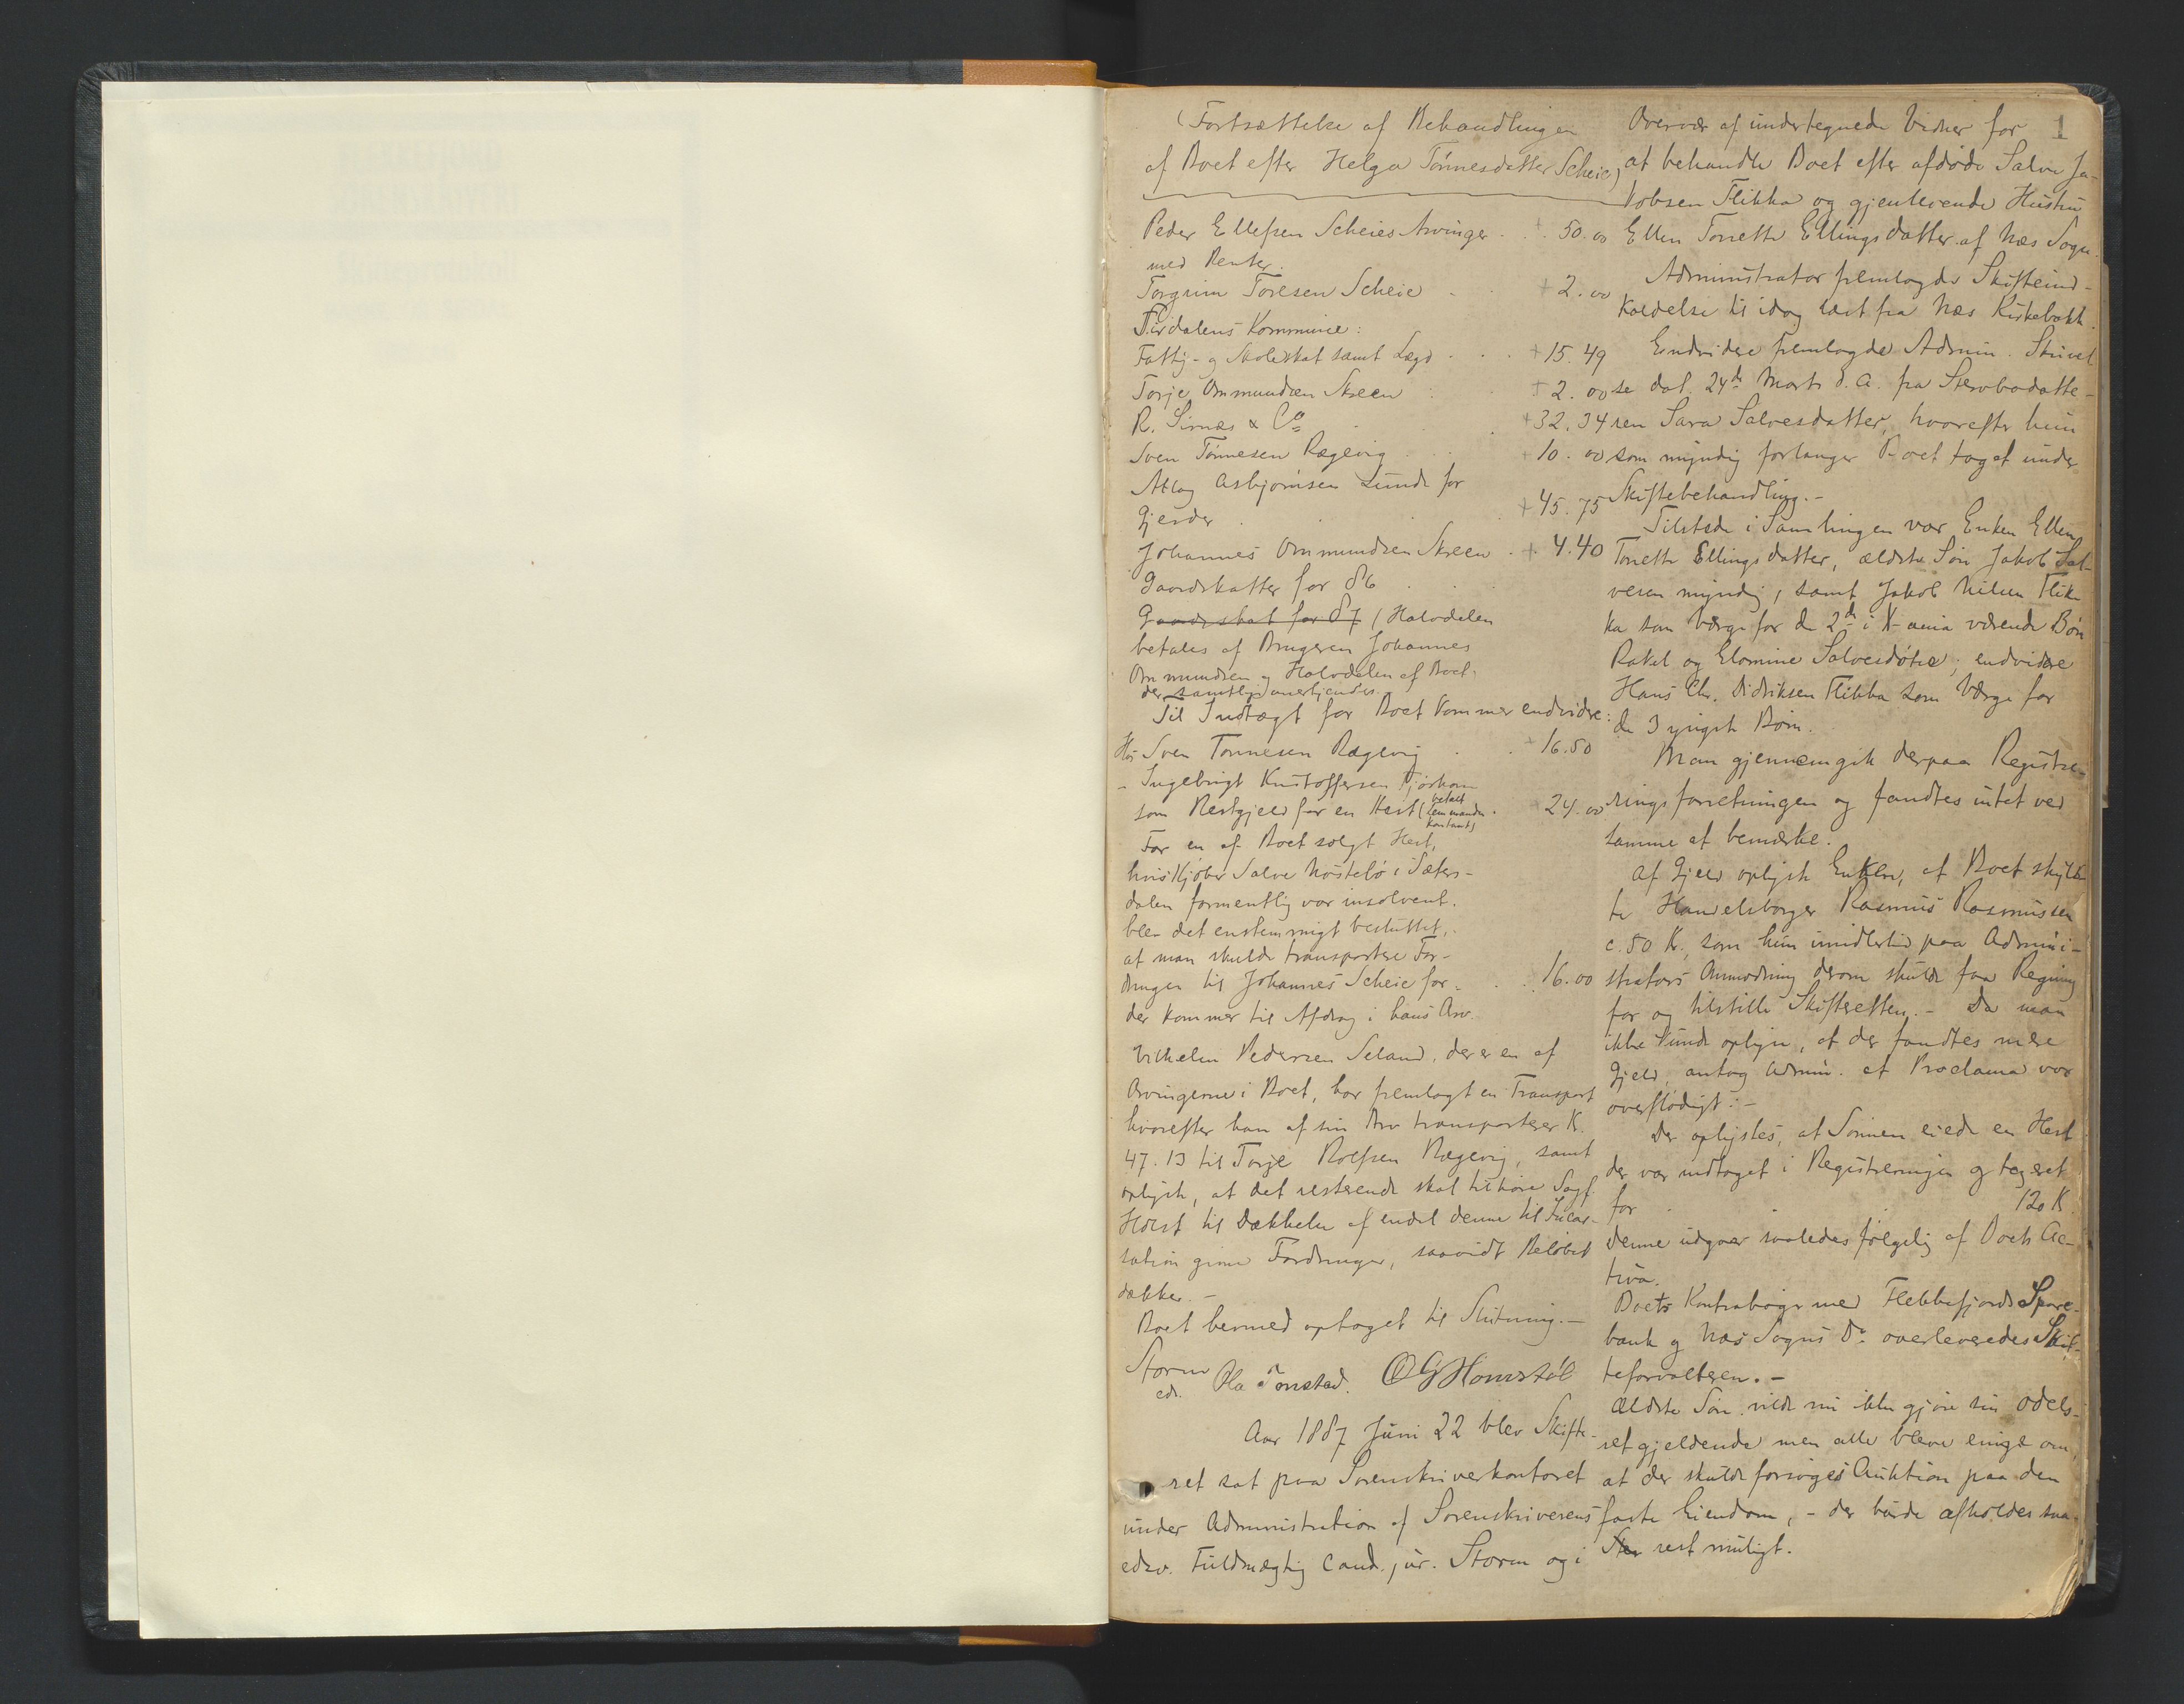 (Fortsættelse af Behandlingen
af Boet efter Helga Tönnesdatter Scheie)
Peder Ellefsen Scheies Arvinger + 50.00
med Renter.
Torgrim Toresen Scheie + 2.00
Sirdalens Kommune:
Fattig- og Skoleskat samt Lægd + 15.49
Torje Ommundsen Skeen + 2.00
R. Sirnæs & Co + 32.34
Sven Tönnesen Rægevig + 10.00
Atlag Asbjörnsen Lunde for
Gjerder + 45.75
Johannes Ommundsen Skeen + 4.40
Gaardskatter for 86
Gaardskat for 87 (Halvdelen
betales af Brugeren Johannes
Ommundsen og Halvdelen af Boet.
der samtlig anerkjendtes.
Til Indtægt for Boet kommer endvidre:
Hos Sven Tönnesen Rægevig + 16.50
- Ingebrigt Kristoffersen Tjörhom
som Restgjeld for en Hest (betalt Lensmanden kontant) + 24.00
For en af Boet solgt Hest,
hvis Kjöber Salve Nöstebö i Sæters-
dalen formentlig var insolvent.
blev det enstemmigt besluttet,
at man skulde transportere For-
dringen til Johannes Scheie for 16.00
der kommer til Afdrag i hans Arv.
Vilhelm Pedersen Seland, der er en af
Arvingerne i Boet, har fremlagt en Transport
hvorefter han af sin Arv transporterer K.
47.13 til Torje Rolfsen Rægevig, samt
oplyste, at det resterende skal tilhöre Sagf.
Holst til Dækkelse af endel denne til Incas-
sation givne Fordringer, saavidt Belöbet
dækker. -
Boet hermed optaget til Slutning. -
Storm
edv. Ola Tonstad. O G Homstöl
Aar 1887 Juni 22 blev Skifte-
ret sat paa Sorenskriverkontoret
under Administration af Sorenskriverens
edsv. Fuldmægtig Cand. jur. Storm og i
1
Overvær af undertegnede Vidner for
at behandle Boet efter afdöde Salve Ja-
kobsen Flikka og gjenlevende Hustru
Ellen Tonette Ellingsdatter af Næs Sogn.
Administrator fremlagde Skifteind-
kaldelse til idag læst fra Næs Kirkebakk.
Endvidere fremlagde Admin. Skrivel
se dat. 24de Marts d. A. fra Stervbodatte-
ren Sara Salvesdatter, hvorefter hun
som myndig forlanger Boet taget under
Skiftebehandling. -
Tilstede i Samlingen var Enken Ellen
Tonette Ellingsdatter, ældste Sön Jakob Sal-
vesen myndig, samt Jakob Nilsen Flik-
ka som Værge for de 2de i K-ania værende Börn
Rakel og Elomine Salvesdötre; endvidere
Hans Chr. Didriksen Flikka som Værge for
de 3 yngste Börn.
Man gjennemgik derpaa Registre-
ringsforretningen og fandtes intet ved
samme at bemærke.
Af Gjeld oplyste Enken, at Boet skyld-
te Handelsborger Rasmus Rasmussen
c. 50 K, som hun imidlertid paa Admini-
strators Anmodning derom skulde faa Regning
for og tilstille Skifteretten. - Da man
ikke kunde oplyse, at der fandtes mere
Gjeld, antog Admin. at Proclama var
overflödigt. -
Der oplystes, at Sönnen eiede en Hest
der var indtaget i Registreringen og taxeret
for 120 K.
denne udgaar saaledes fölgelig af Boets Ac-
tiva.
Boets Kontraböger med Flekkefjords Spare-
bank og Næs Sogns Do overleveredes Skif-
teforvalteren. -
Ældste Sön vilde nu ikke gjöre sin Odels-
ret gjeldende men alle bleve enige om,
at der skulde forsöges Auktion paa den
faste Eiendom, - der burde afholdes sna-
rest muligt.